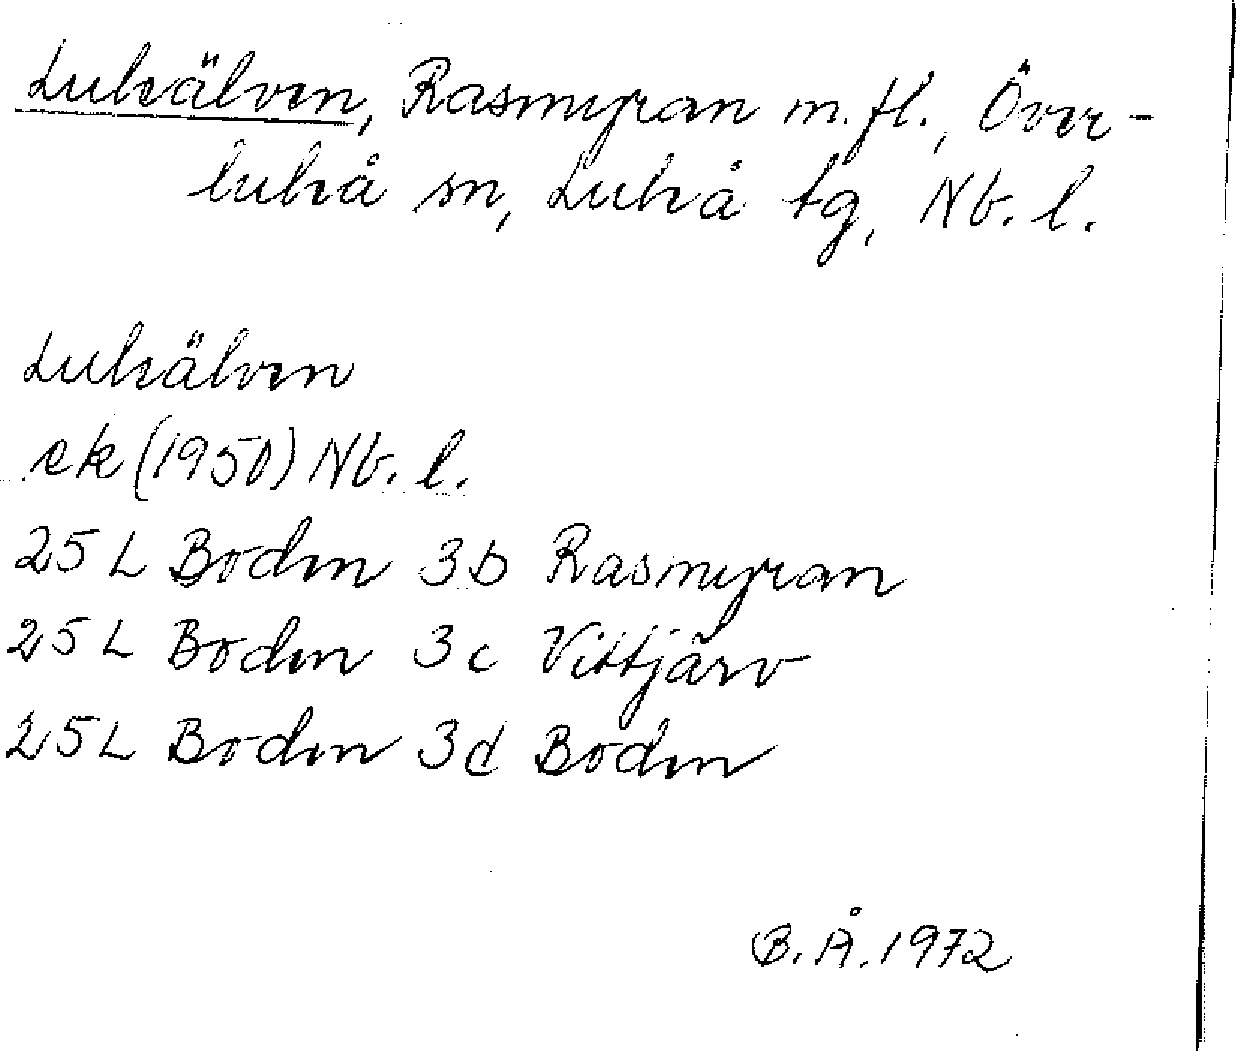 Luleälven, Rasmyran m.fl., Över-
luleå sn, Luleå tg, Nb. l.
Luleälven
ek (1950) Nb. l.
25 L Boden 3b Rasmyran
25 L Boden 3c Vittjärv
25 L Boden 3d Boden
B. Å. 1972